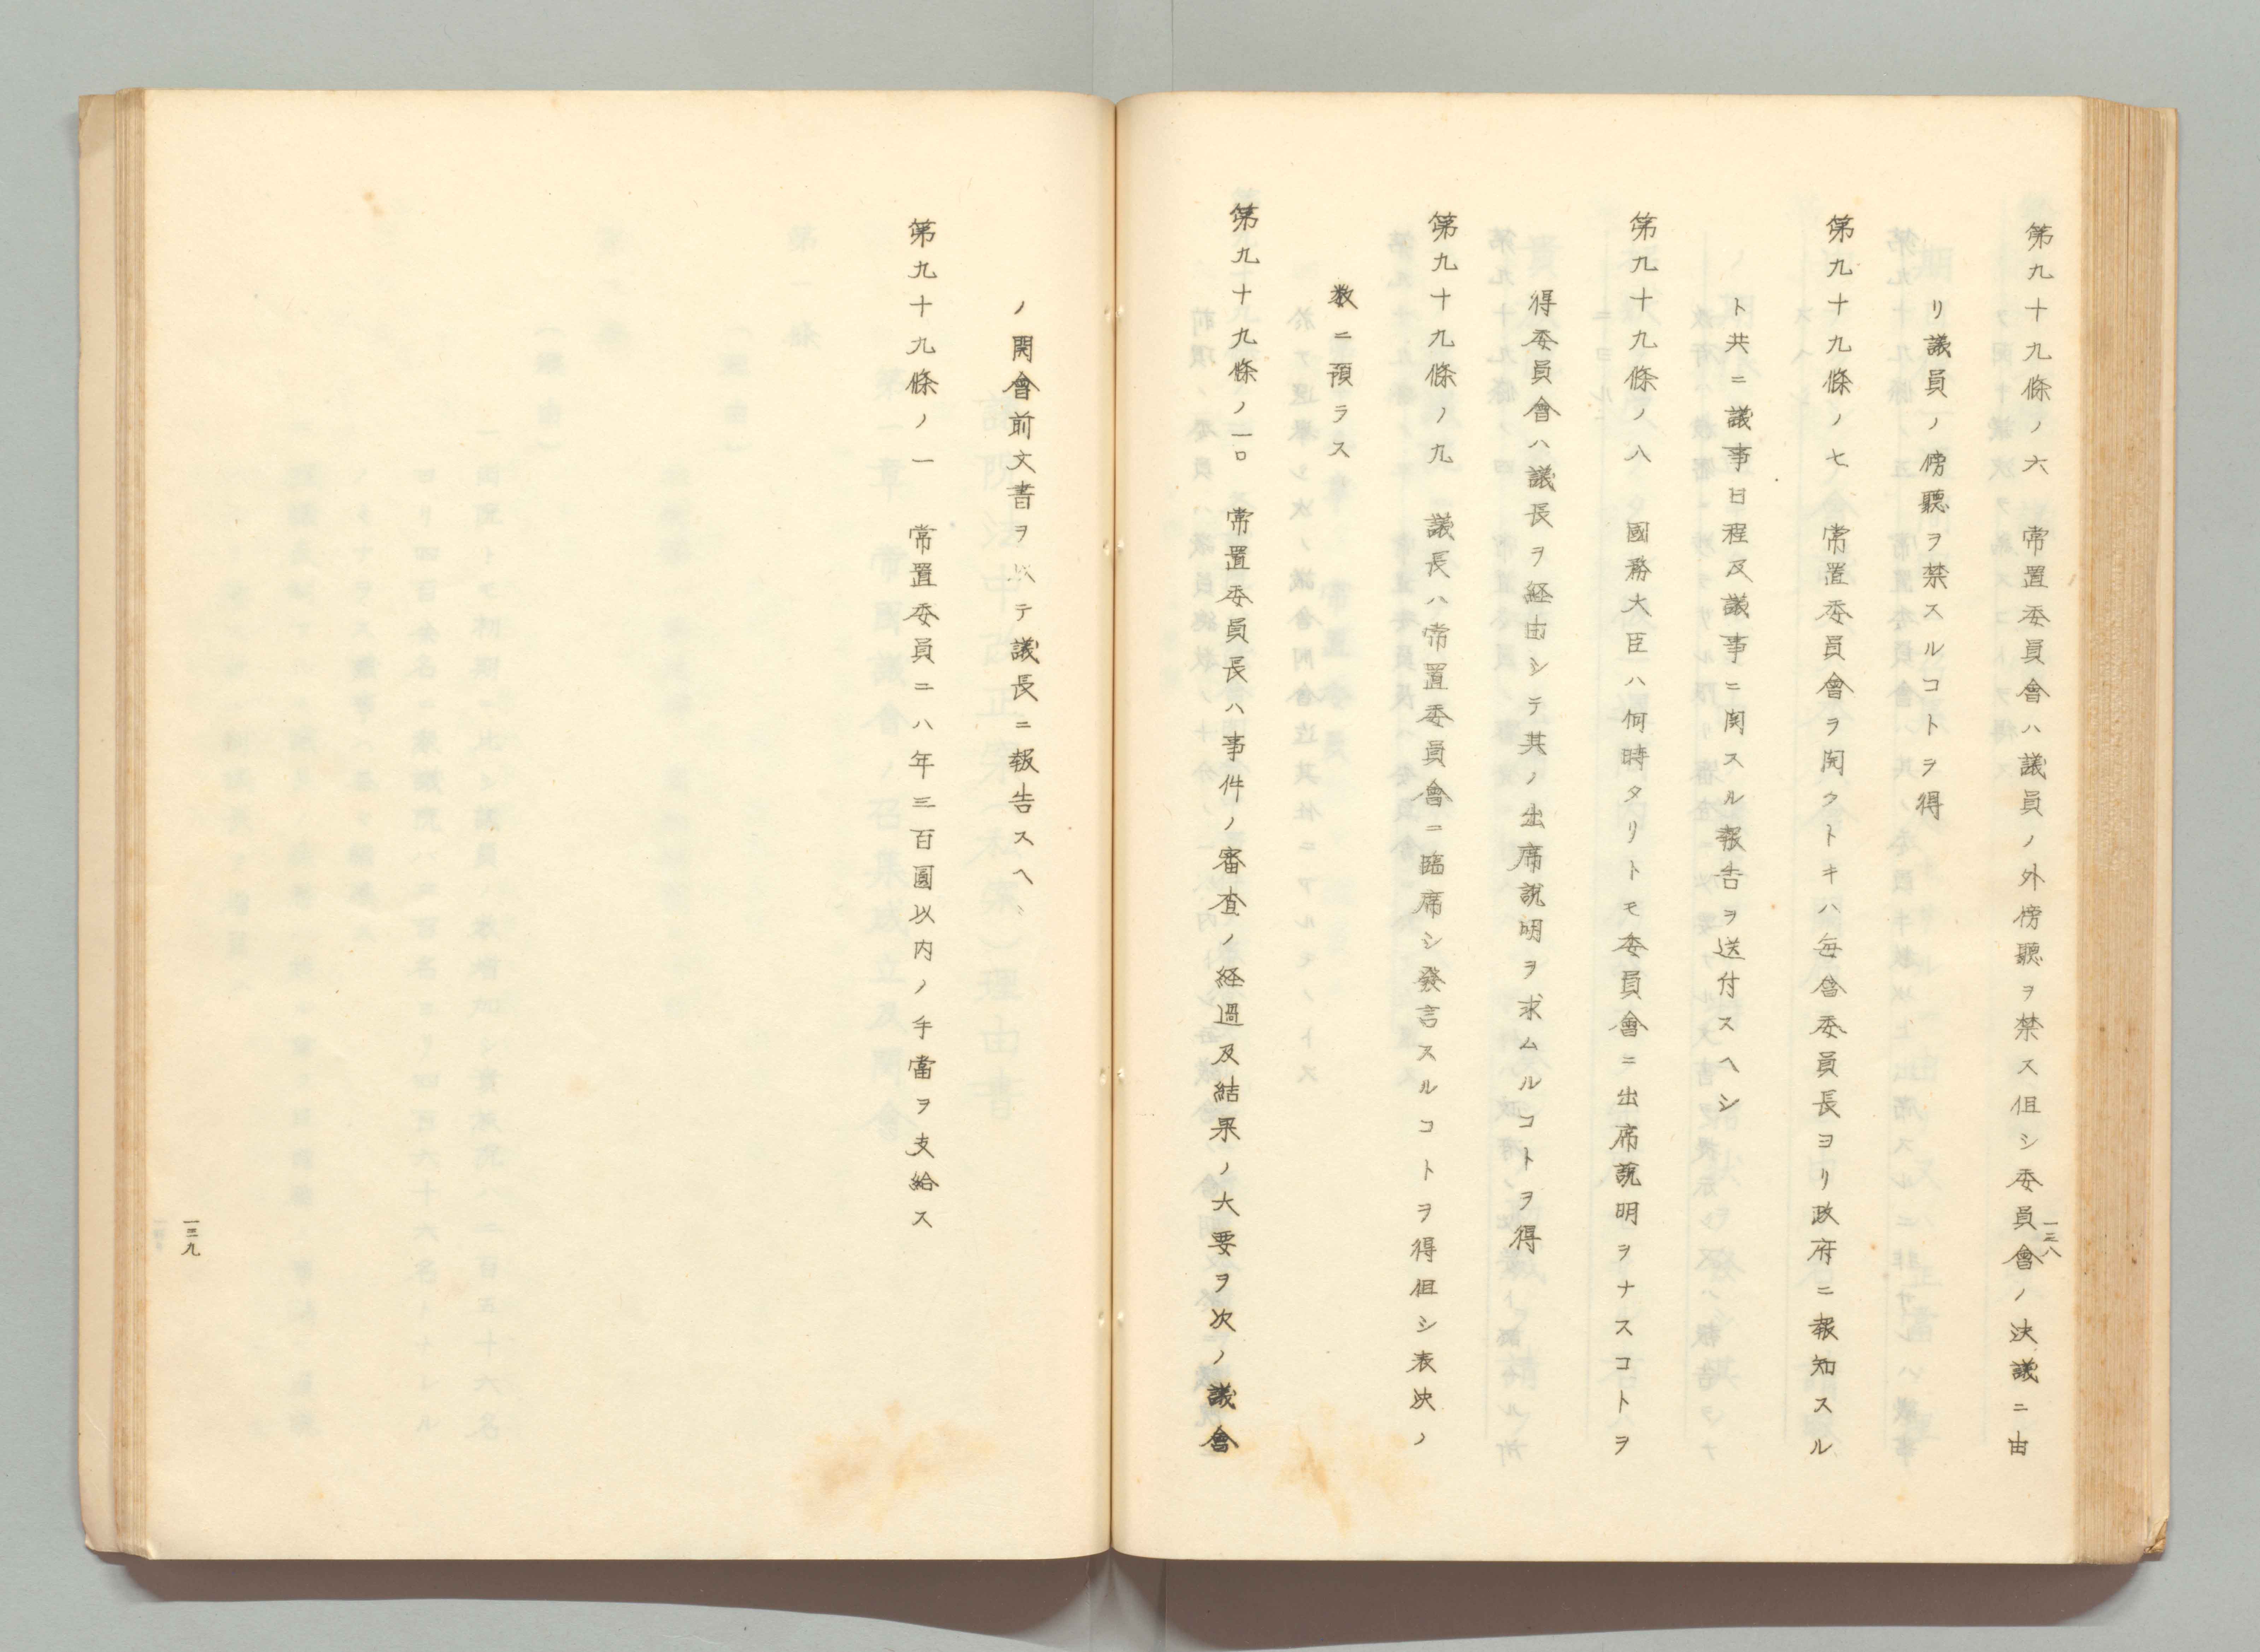 第九十九條ノ六　常置委員會ハ議員ノ外傍聽ヲ禁ス但シ委員會ノ決議ニ由
リ議員ノ傍聽ヲ禁スルコトヲ得
第九十九條ノ七　常置委員會ヲ開クトキハ每會委員長ヨリ政府ニ報知スル
ト共ニ議事日程及議事ニ関スル報告ヲ送付スヘシ
第九十九條ノ八　國務大臣ハ何時タリトモ委員會ニ出席說明ヲナスコトヲ
得委員會ハ議長ヲ経由シテ其ノ出席說明ヲ求ムルコトヲ得
第九十九條ノ九　議長ハ常置委員會ニ臨席シ發言スルコトヲ得但シ表決ノ
数ニ預ラス
第九十九條ノ一〇　常置委員長ハ事件ノ審査ノ経過及結果ノ大要ヲ次ノ議會
一三八
ノ開會前文書ヲ以テ議長ニ報告スヘ
第九十九條ノ一　常置委員ニハ年三百圓以内ノ手當ヲ支給ス
一三九